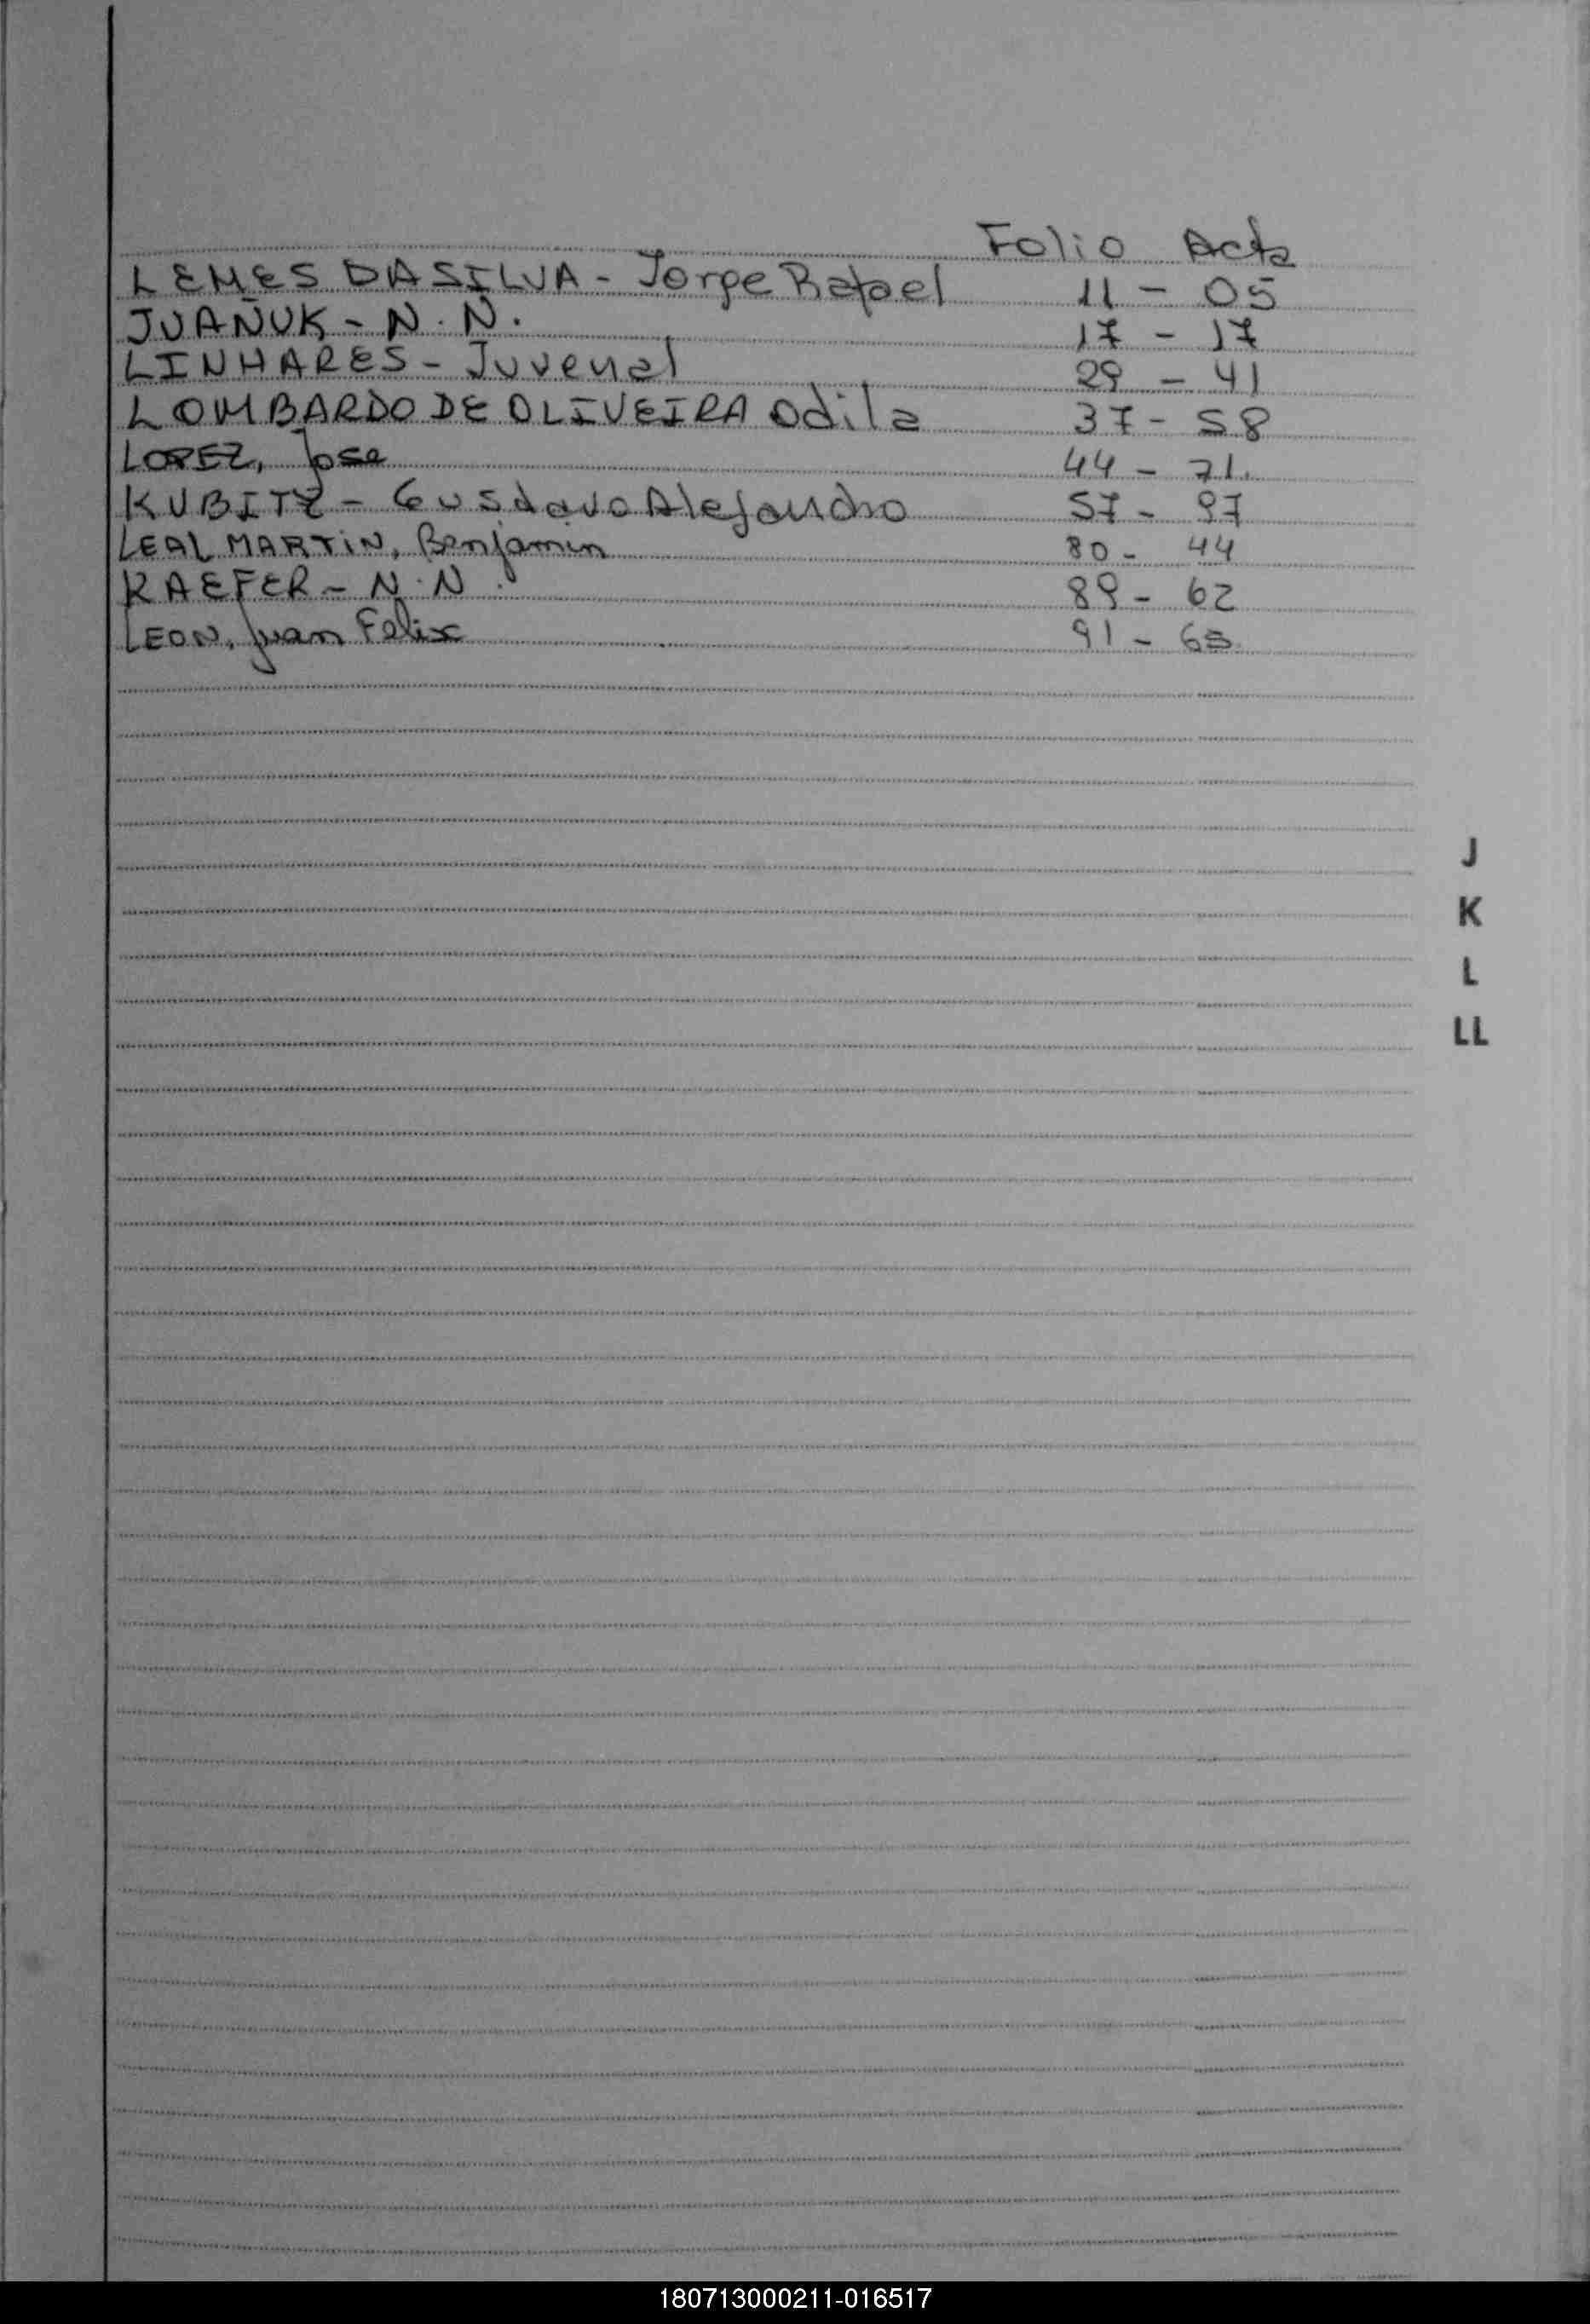 Folio Acta
LEMES DA SILVA - Jorge Rafael 11 - 05
JUAÑUK - N. N. 17 - 17
LINHARES - Juvenal 29 - 41
LOMBARDO DE OLIVEIRA Odila 37 - 58
LOPEZ, Jose 44 - 71.
KUBITZ - Gustavo Alejandro 57 - 97
LEAL MARTIN, Benjamin 80 - 44
KAEFER - N. N. 89 - 62
LEON, Juan Felix 91 - 65
J
K
L
LL
180713000211-016517